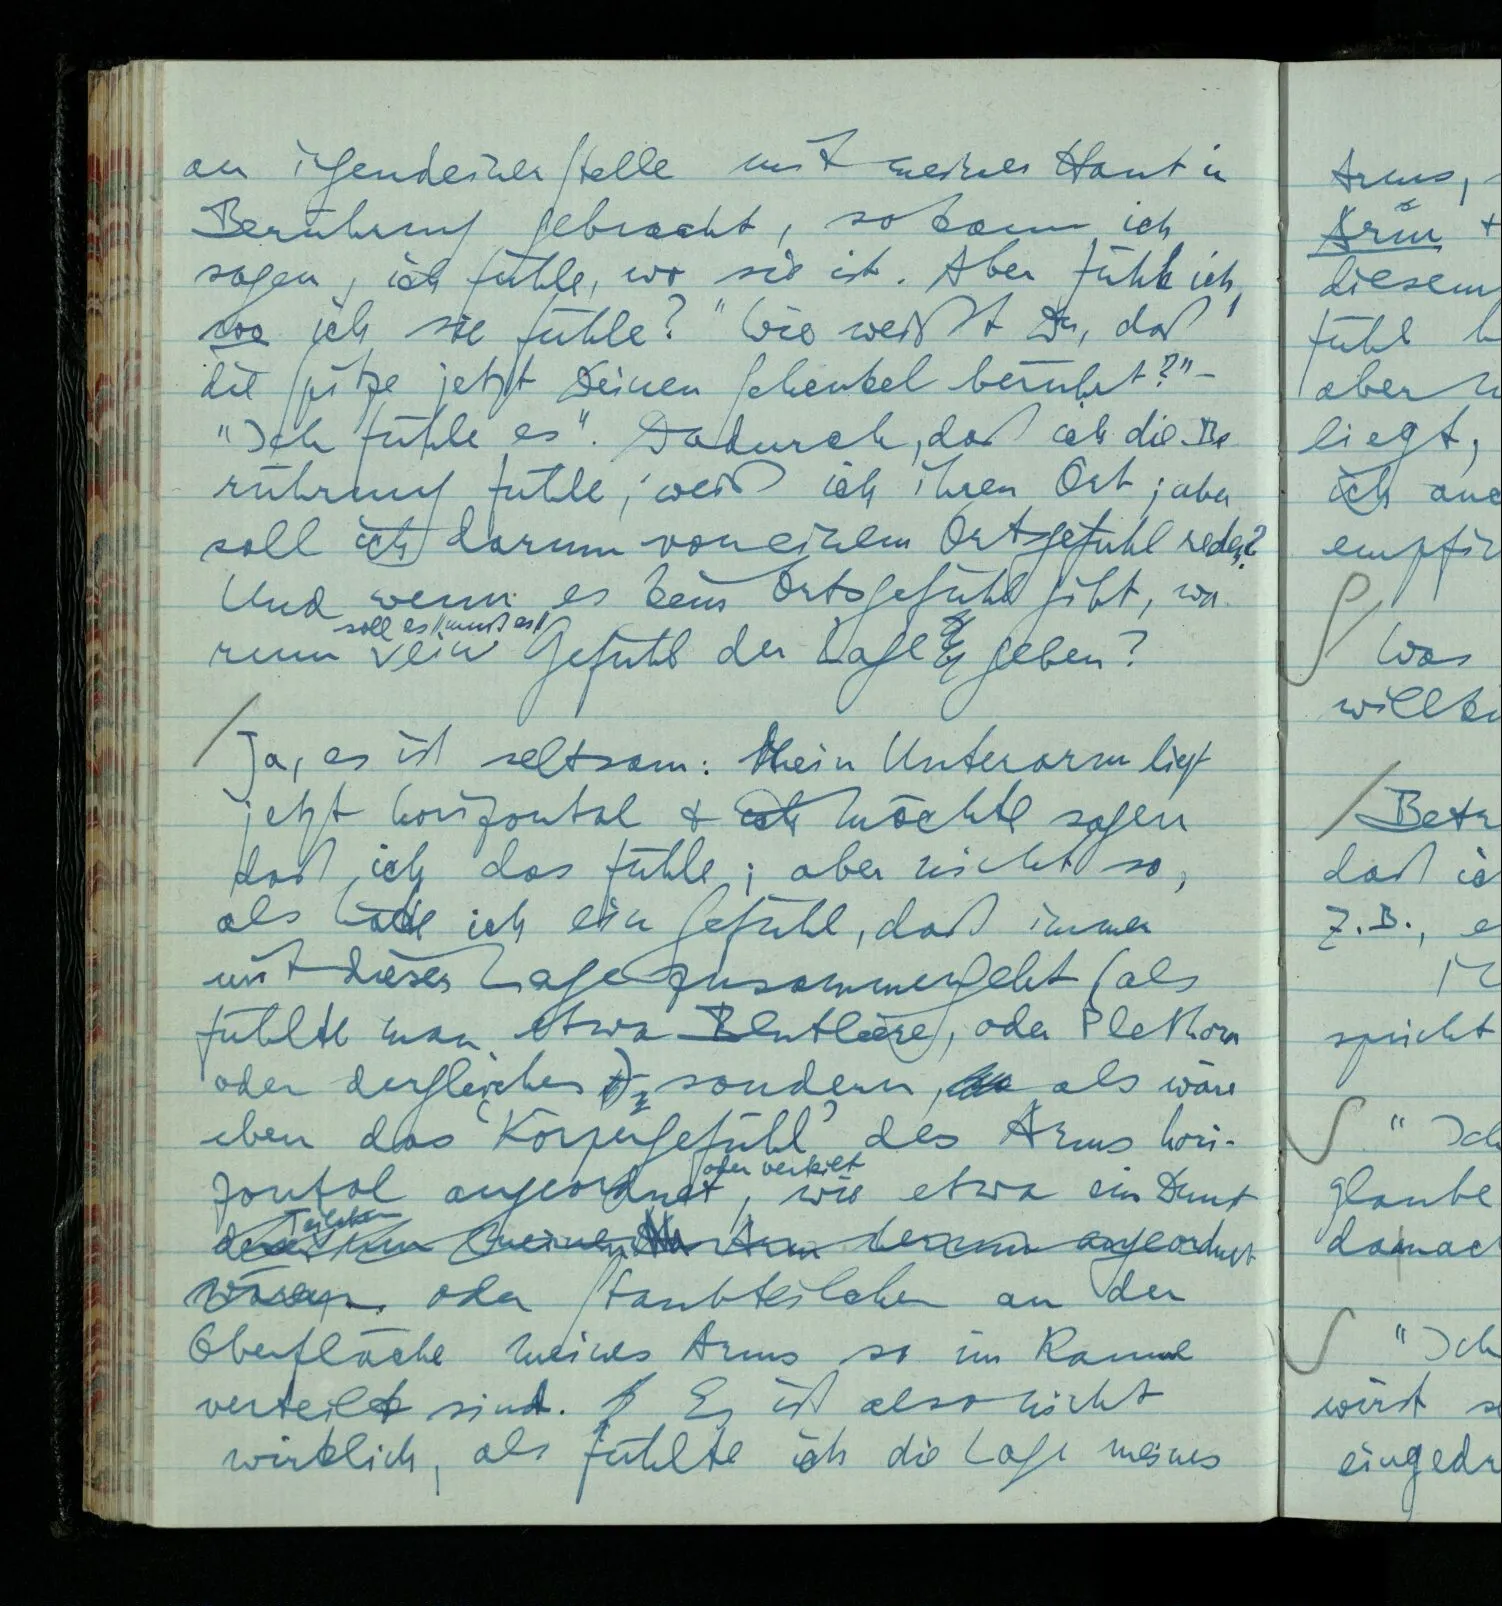 an irgendeiner Stelle mit meiner Haut in
Berührung gebracht, so kann ich
sagen, ich fühle, wo sie ist. Aber fühle ich,
wo ich sie fühle? "Wie weißt Du, daß
die Spitze jetzt Deinen Schenkel berührt?" –
"Ich fühle es". Dadurch, daß ich die Be
rührung fühle, weiß ich ihren Ort; aber
soll ich darum von einem Ortsgefühl reden?
Und wenn es kein Ortsgefühl gibt, wa
soll es || muß es ||
rum ein Gefühl der Lage geben?
/ Ja, es ist seltsam: Mein Unterarm liegt
jetzt horizontal & ich möchte sagen
daß ich das fühle; aber nicht so,
als hätte ich ein Gefühl, daß immer
mit dieser Lage zusammengeht (als
fühlte man etwa Blutleere, oder Plethora
oder dergleichen) sondern, als wäre
eben das 'Körpergefühl' des Arms hori-
oder verteilt
zontal angeordnet, wie etwa ein Dunst
Teilchen
meinen Arm herum angeordnet
wären. oder Staubteilchen an der
Oberfläche meines Arms so im Raume
verteilt sind. Es ist also nicht
wirklich, als fühlte ich die Lage meines
Arms,
Arm
diesem
fühl
aber
liegt,
ich
Was
/
daß
z.B.,
spricht
"Ich
glaube
"Ich
wird